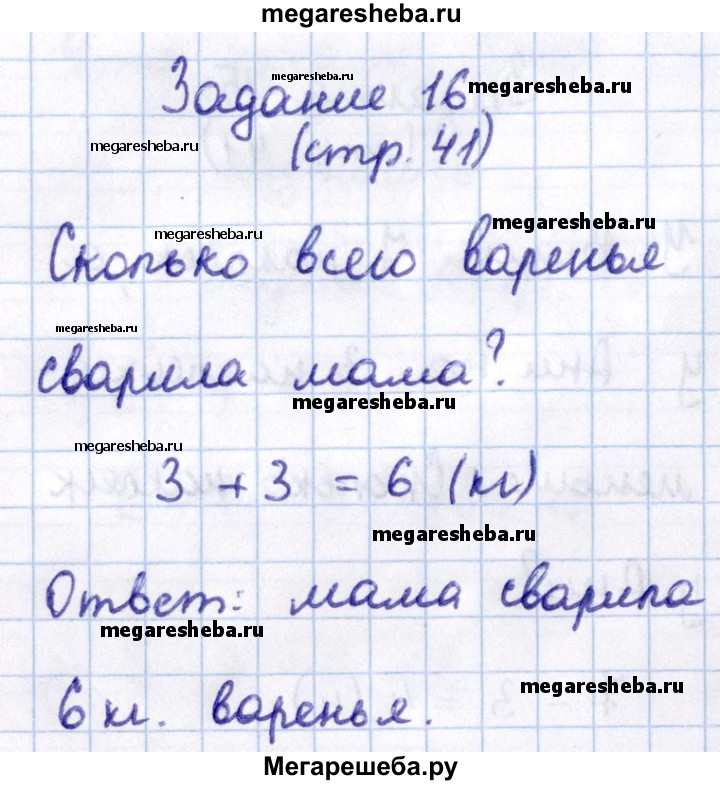 megaresheba.ru
megaresheba.ru
Задание 16 megaresheba.ru
megaresheba.ru (стр. 41)
megaresheba.ru megaresheba.ru
Сколько всего варенья
megaresheba.ru
сварила мама?
megaresheba.ru
megaresheba.ru
3 + 3 = 6 (кг)
megaresheba.ru
Ответ: мама сварила
megaresheba.ru
megaresheba.ru
6 кг. варенья.
Мегарешеба.ру